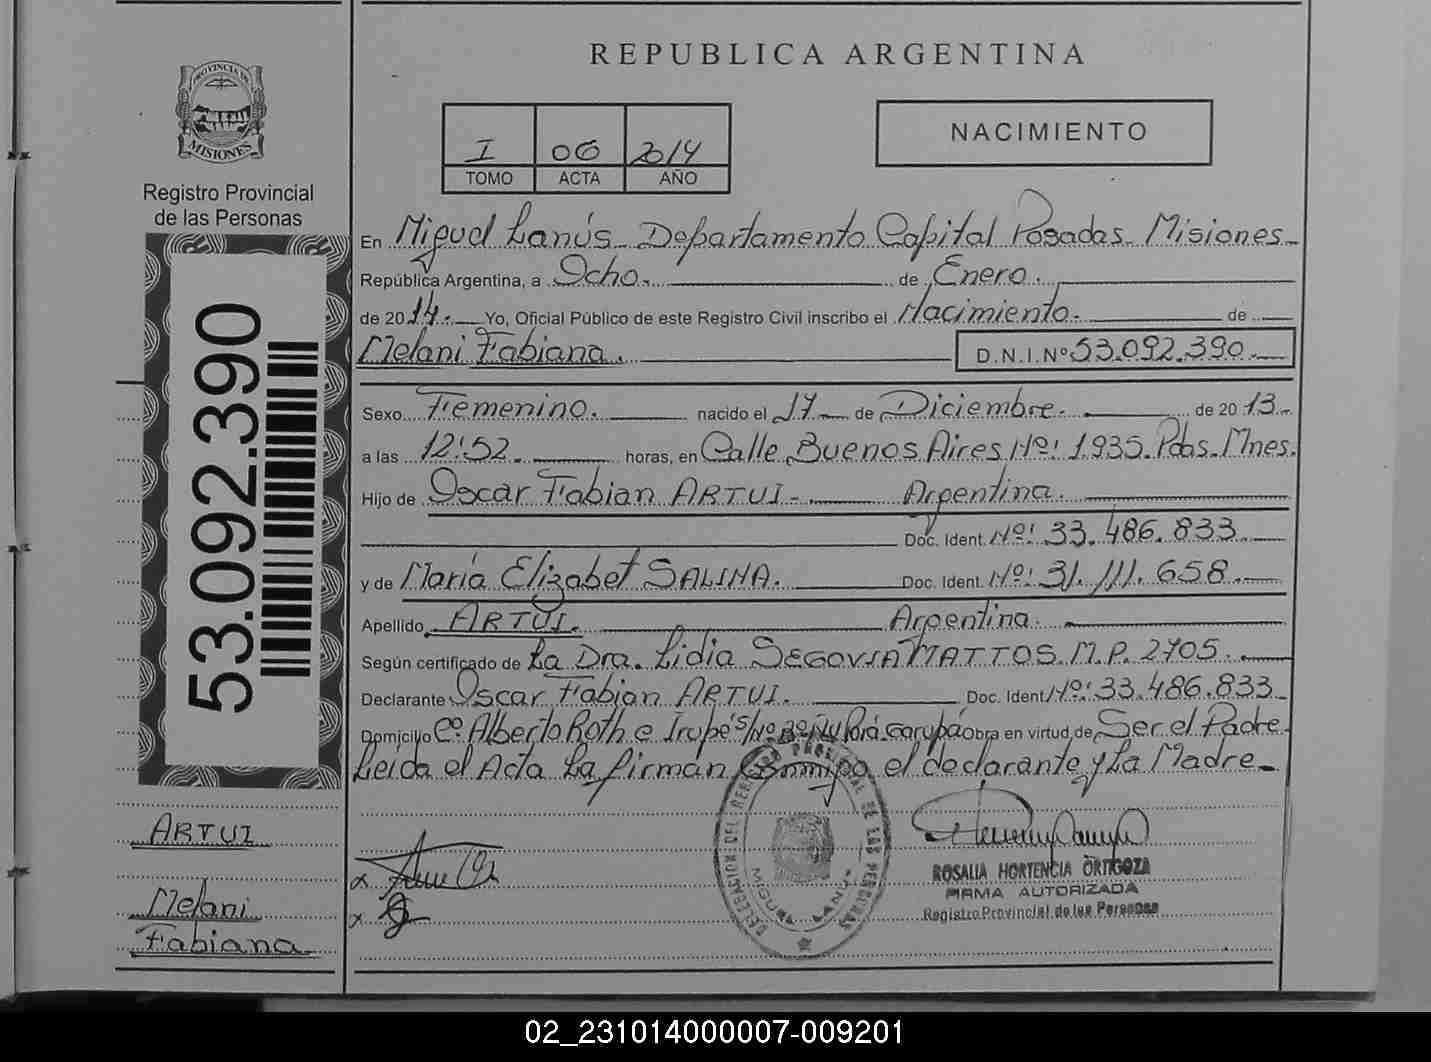 REPUBLICA ARGENTINA
PROVINCIA DE
MISIONES
Registro Provincial
de las Personas
NACIMIENTO
I 06 2014
TOMO ACTA AÑO
En Miguel Lanús Departamento Capital Posadas Misiones
República Argentina, a Ocho. de Enero.
de 2014. Yo, Oficial Público de este Registro Civil inscribo el Nacimiento. de
Melani Fabiana. D.N.I.Nº 53.092.390
Sexo Femenino. nacido el 17 de Diciembre. de 2013
a las 12:52. horas, en Calle Buenos Aires Nº: 1.935. Pdas. Mnes.
Hijo de Oscar Fabian ARTUI Argentina.
Doc. Ident. Nº: 33.486.833
y de María Elizabet SALINA. Doc. Ident. Nº: 31.111.658
Apellido ARTUI. Argentina.
Según certificado de La Dra. Lidia SEGOVIA MATTOS. M.P. 2705.
Declarante Oscar Fabian ARTUI. Doc. Ident Nº: 33.486.833
Domicilio Cº Alberto Roth e Irupé S/Nº Bº Ñu Porá Garupá Obra en virtud de Ser el Padre
Leída el Acta La firman Conmigo el declarante y La Madre
53.092.390
ARTUI
Melani
Fabiana
DELEGACION DEL REGISTRO PROVINCIAL DE LAS PERSONAS
MIGUEL LANUS
ROSALIA HORTENCIA ORTIGOZA
FIRMA AUTORIZADA
Registro Provincial de las Personas
02_231014000007-009201